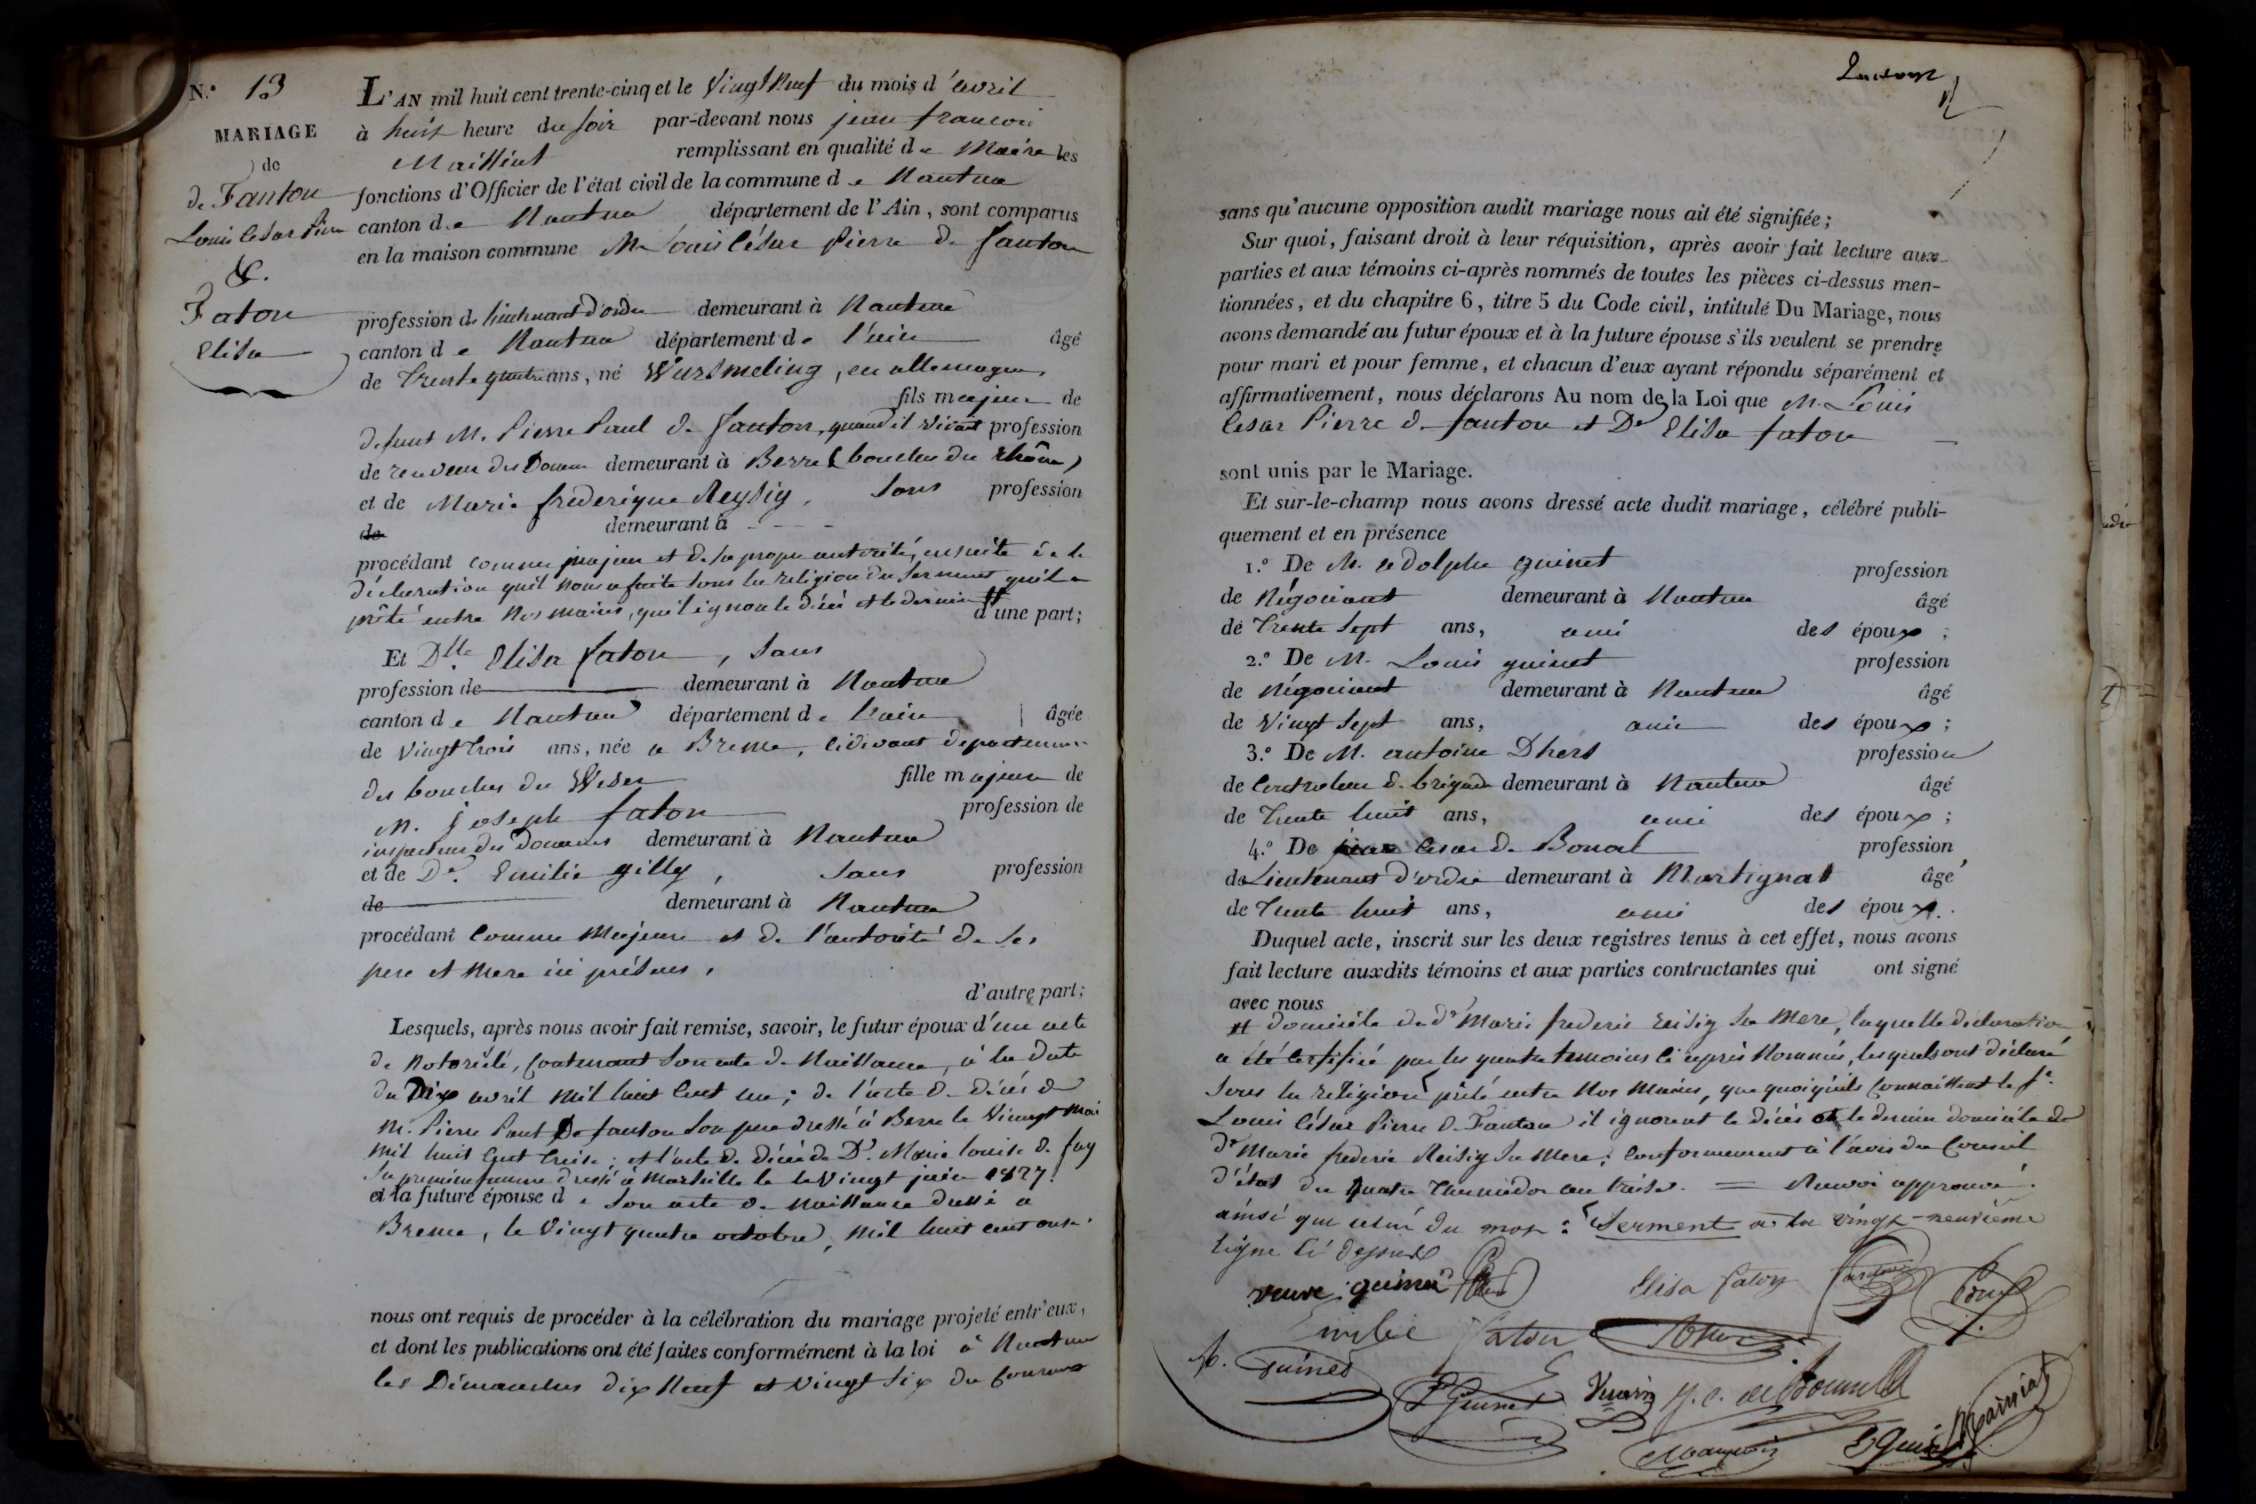 N.o 13
MARIAGE
de
de Fanton
Louis César Pierre
&.
Faton
Elisa
L'AN mil huit cent trente-cinq et le Vingt Neuf du mois d'avril
à huit heure du soir par-devant nous jean françois
Maissiat remplissant en qualité de Maire les
fonctions d'Officier de l'état civil de la commune de Nantua
canton de Nantua département de l'Ain, sont comparus
en la maison commune M. Louis César Pierre de fanton
profession de lieutenant d'ordre demeurant à Nantua
canton de Nantua département de l'ain âgé
de Trente quatre ans, né Wursmeling, en allemagne,
fils majeur de
defunt M. Pierre Paul de fanton, quand il vivait profession
de receveur des Douanes demeurant à Berre (bouches du rhône)
et de Marie frederique Reysig, sans profession
de demeurant à - - - -
procédant comme majeur et de sa propre autorité, ensuite de la
déclaration qu'il nous a faite sous la religion du serment qu'il a
prêté entre nos mains, qu'il ignore le décès et le dernier #
d'une part;
Et Dlle Elisa faton, sans
profession de demeurant à Nantua
canton de Nantua département de l'ain âgée
de Vingt trois ans, née a Breme, cidevant departement
des bouches du Weser fille majeure de
M. joseph faton profession de
inspecteur des Douanes demeurant à Nantua
et de De. Emilie gilly, sans profession
de demeurant à Nantua
procédant comme Majeure et de l'autorité de ses
pere et mere ici présens,
d'autre part;
Lesquels, après nous avoir fait remise, savoir, le futur époux d'un acte
de Notoriété, contenant son acte de Naissance, à la date
du Dix avril mil huit cent un; de l'acte de décès de
M. Pierre Paul De fanton son pere dressé à Berre le Vingt mai
mil huit cent treize; et l'acte de décès de De. Marie louise de fay
sa première femme dressé à Marseille le le Vingt juin 1827!
et la future épouse de son acte de naissance dressé a
Breme, le Vingt quatre octobre, mil huit cent onze.
nous ont requis de procéder à la célébration du mariage projeté entr'eux,
et dont les publications ont été faites conformément à la loi à Nantua
les Dimanches dix Neuf et Vingt Six du Courant
sans qu'aucune opposition audit mariage nous ait été signifiée;
Sur quoi, faisant droit à leur réquisition, après avoir fait lecture aux
parties et aux témoins ci-après nommés de toutes les pièces ci-dessus men-
tionnées, et du chapitre 6, titre 5 du Code civil, intitulé Du Mariage, nous
avons demandé au futur époux et à la future épouse s'ils veulent se prendre
pour mari et pour femme, et chacun d'eux ayant répondu séparément et
affirmativement, nous déclarons Au nom de la Loi que M. Louis
César Pierre de fanton et De Elisa faton
sont unis par le Mariage.
Et sur-le-champ nous avons dressé acte dudit mariage, célébré publi-
quement et en présence
1.o De M. adolphe guinet profession
de Négociant demeurant à Nantua âgé
de Trente Sept ans, ami des époux;
2.o De M. Louis guinet profession
de Négociant demeurant à Nantua âgé
de Vingt Sept ans, ami des époux;
3.o De M. antoine Dhers profession
de Controleur de brigade demeurant à Nantua âgé
de Trente huit ans, ami des époux;
4.o De jean César de Bonal profession
de Lieutenant d'ordre demeurant à Martignat âgé
de Trente huit ans, ami des époux.
Duquel acte, inscrit sur les deux registres tenus à cet effet, nous avons
fait lecture auxdits témoins et aux parties contractantes qui ont signé
avec nous
# domicile de de Marie frederic reisig sa Mere, laquelle déclaration
a été certifiée par les quatre temoins ci après Nommés, lesquels ont déclaré
sous la religion prêté entre Nos Mains, que quoiqu'ils connaissent le sr.
Louis César Pierre de Fanton il ignorent le décès et le dernier domicile de
De Marie frederic Reisig sa Mere; conformement à l'avis du Conseil
d'état du quatre Thermidor an treize. = Renvoi approuvé.
ainsi que celui du mot: Serment a la vingt-neuvième
ligne ci dessus
veuve guinet
Elisa faton
Emilie faton
A. Guinet
L Guinet